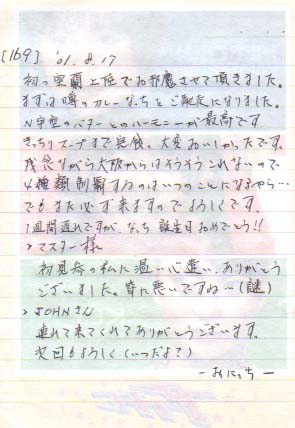 [169] '01.8.17
初の室蘭上陸でお邪魔させて頂きました。
まずは噂のカレーなっちとご馳走になりました。
N字型のバターとのハーモニーが最高です。
きっちりスープまで完食、大変おいしかったです。
残念ながら大阪からはそうそうこれないので
4種類制覇するのはいつのことになるやら…
でもまた必ず来ますのでよろしくです。
1週間遅れですが、なっち誕生日おめでとう!!
>マスター様
初見参の私に温い心遣い、ありがとう
ございました。皆に悪いですね…(謎)
>JOHNさん
連れて来てくれてありがとうございます。
次回もよろしく(いつだよ?)
－おにっち－